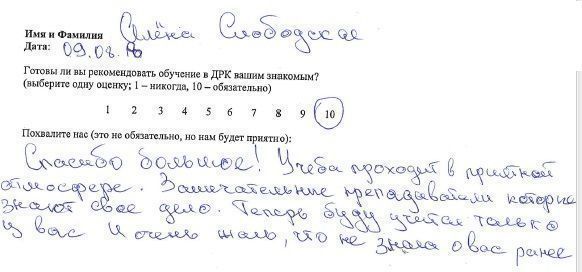 Имя и Фамилия Алёна Слободская
Дата: 09.08.16
Готовы ли вы рекомендовать обучение в ДРК вашим знакомым?
(выберите одну оценку; 1 – никогда, 10 – обязательно)
1 2 3 4 5 6 7 8 9 10
Похвалите нас (это не обязательно, но нам будет приятно):
Спасибо большое! Учеба проходит в приятной
атмосфере. Замечательные преподаватели которые
знают свое дело. Теперь буду учится только
у вас и очень жаль, что не знала о вас ранее